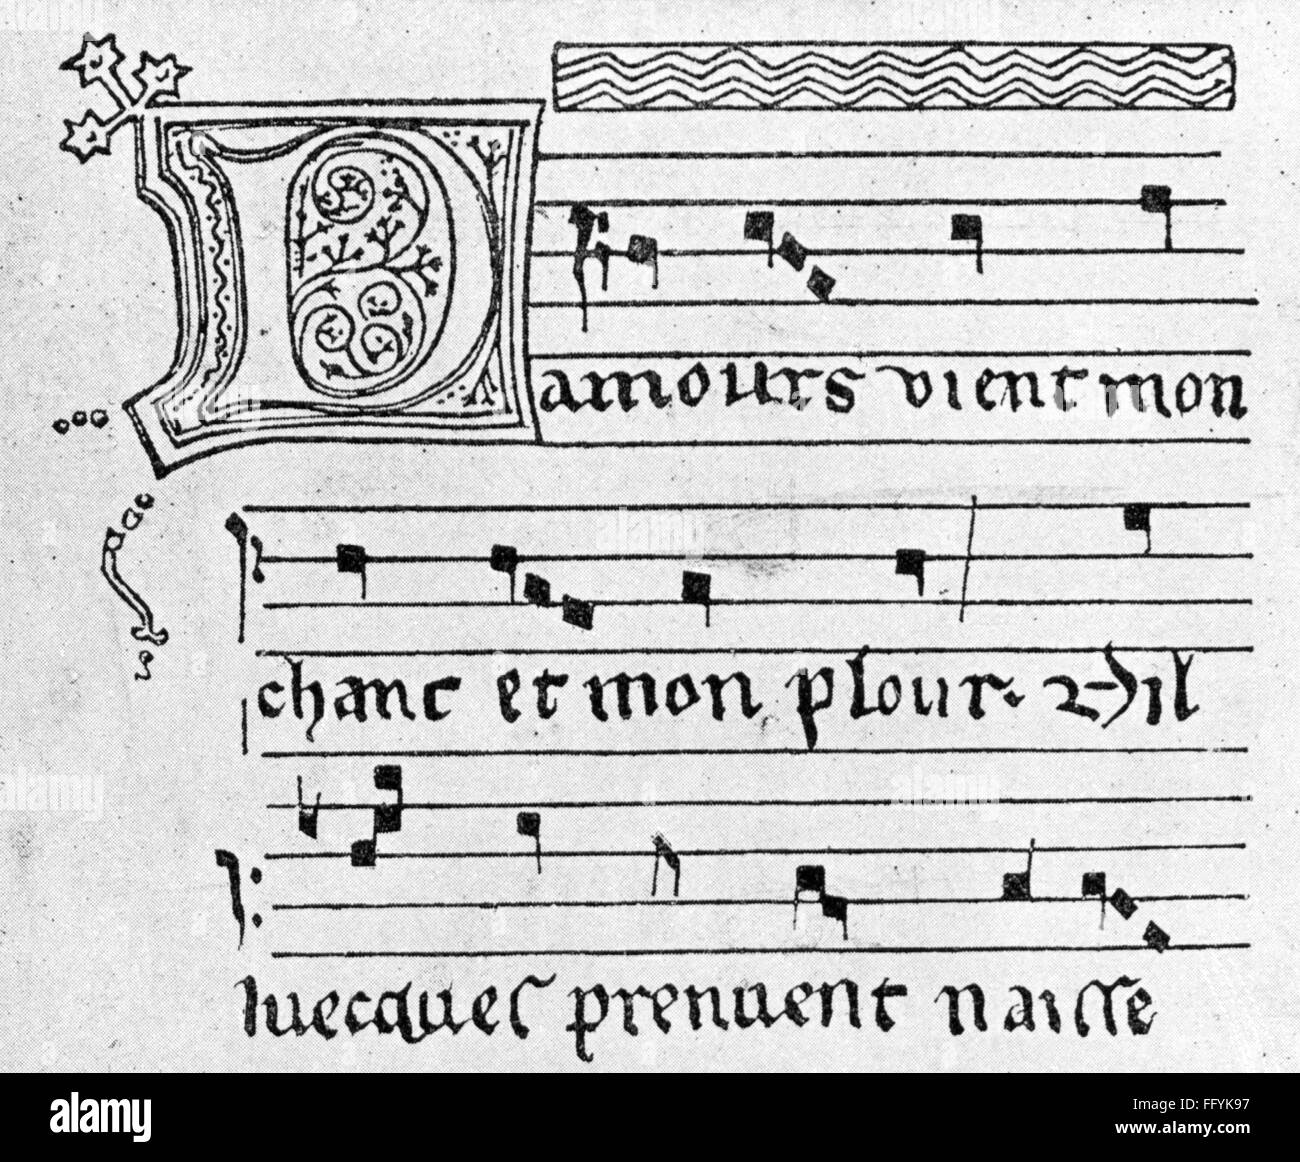 Damours vient mon
chant et mon plour.
luecques prenuent naisse
alamy
Image ID: FFYK97
www.alamy.com